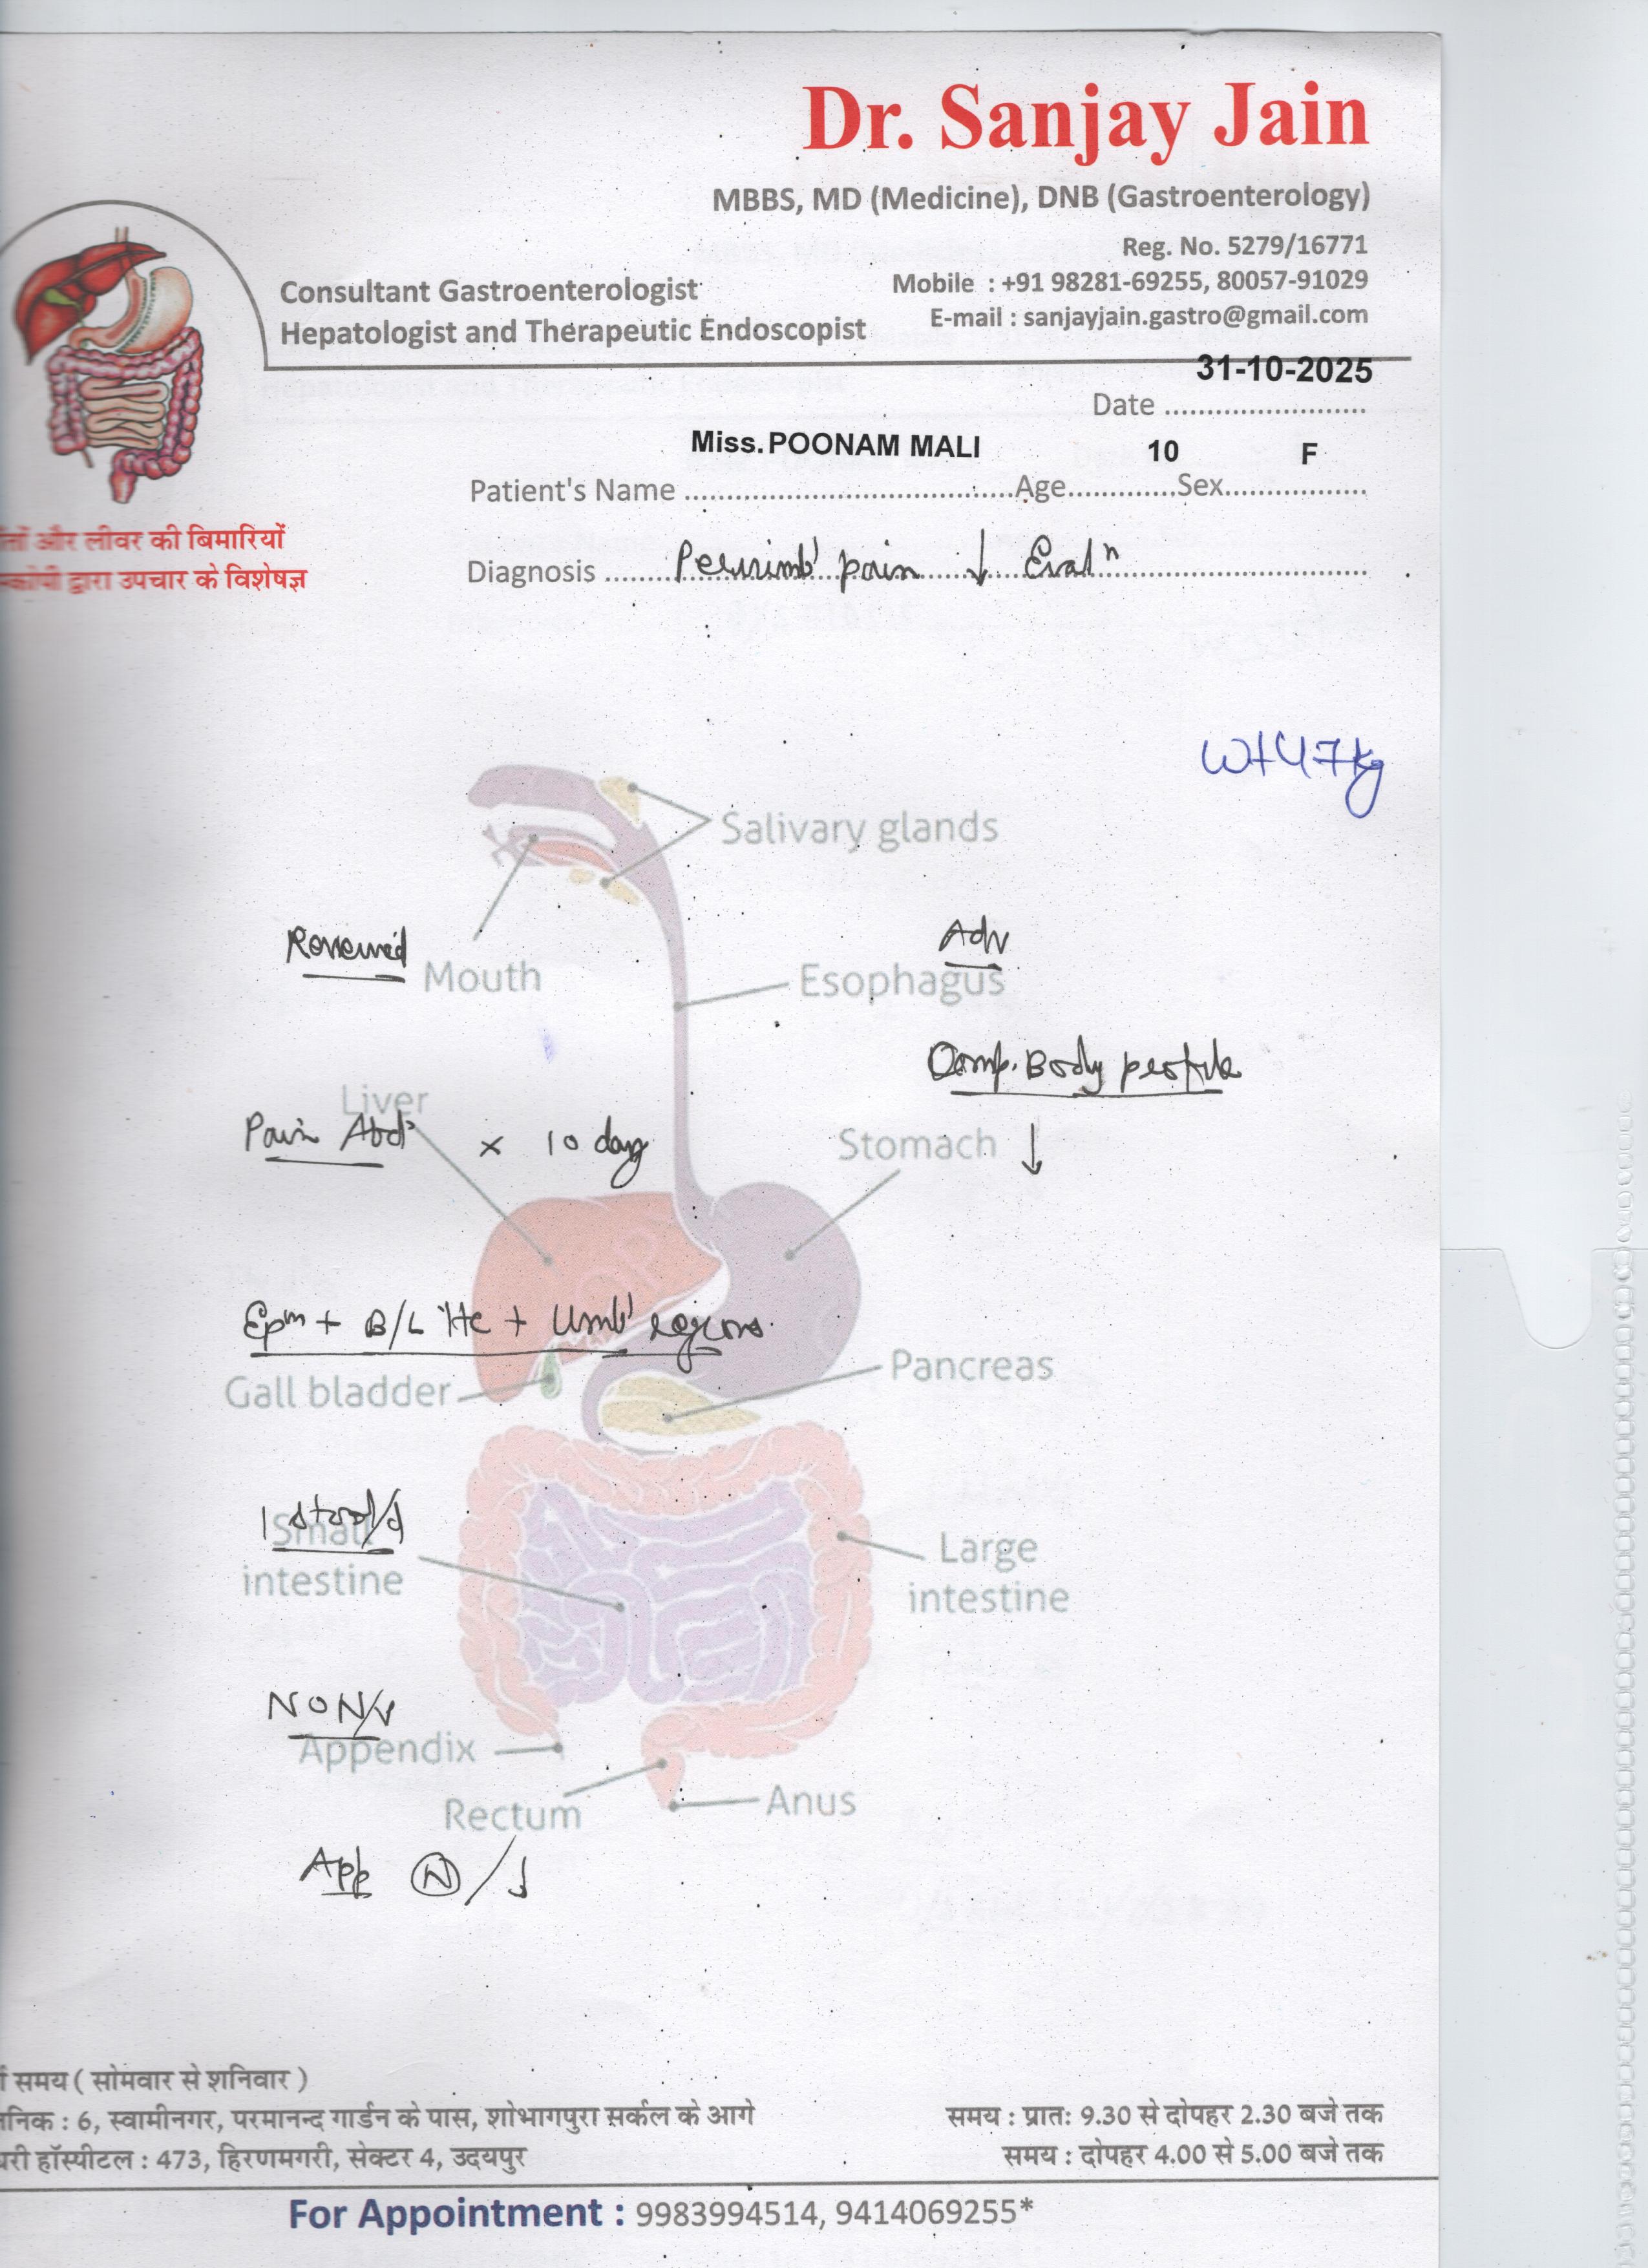 Dr. Sanjay Jain
MBBS, MD (Medicine), DNB (Gastroenterology)
Reg. No. 5279/16771
Mobile : +91 98281-69255, 80057-91029
E-mail : sanjayjain.gastro@gmail.com
Consultant Gastroenterologist
Hepatologist and Therapeutic Endoscopist
31-10-2025
Date
Miss. POONAM MALI 10 F
Patient's Name Age Sex
और लीवर की बिमारियों
द्वारा उपचार के विशेषज्ञ
Diagnosis pain ↓ Evalⁿ
Wt 47kg
Salivary glands
Reviewed Adv
Mouth Esophagus
Comp. Body profile
Liver
Pain Abd' x 10 days
Stomach ↓
Epm + B/L Hc + Umb' regions
Gall bladder Pancreas
1 stool/d
Small intestine
Large intestine
No N/V
Appendix
Rectum Anus
App (N)/↓
समय ( सोमवार से शनिवार )
: 6, स्वामीनगर, परमानन्द गार्डन के पास, शोभागपुरा सर्कल के आगे समय : प्रातः 9.30 से दोपहर 2.30 बजे तक
हॉस्पीटल : 473, हिरणमगरी, सेक्टर 4, उदयपुर समय : दोपहर 4.00 से 5.00 बजे तक
For Appointment : 9983994514, 9414069255*